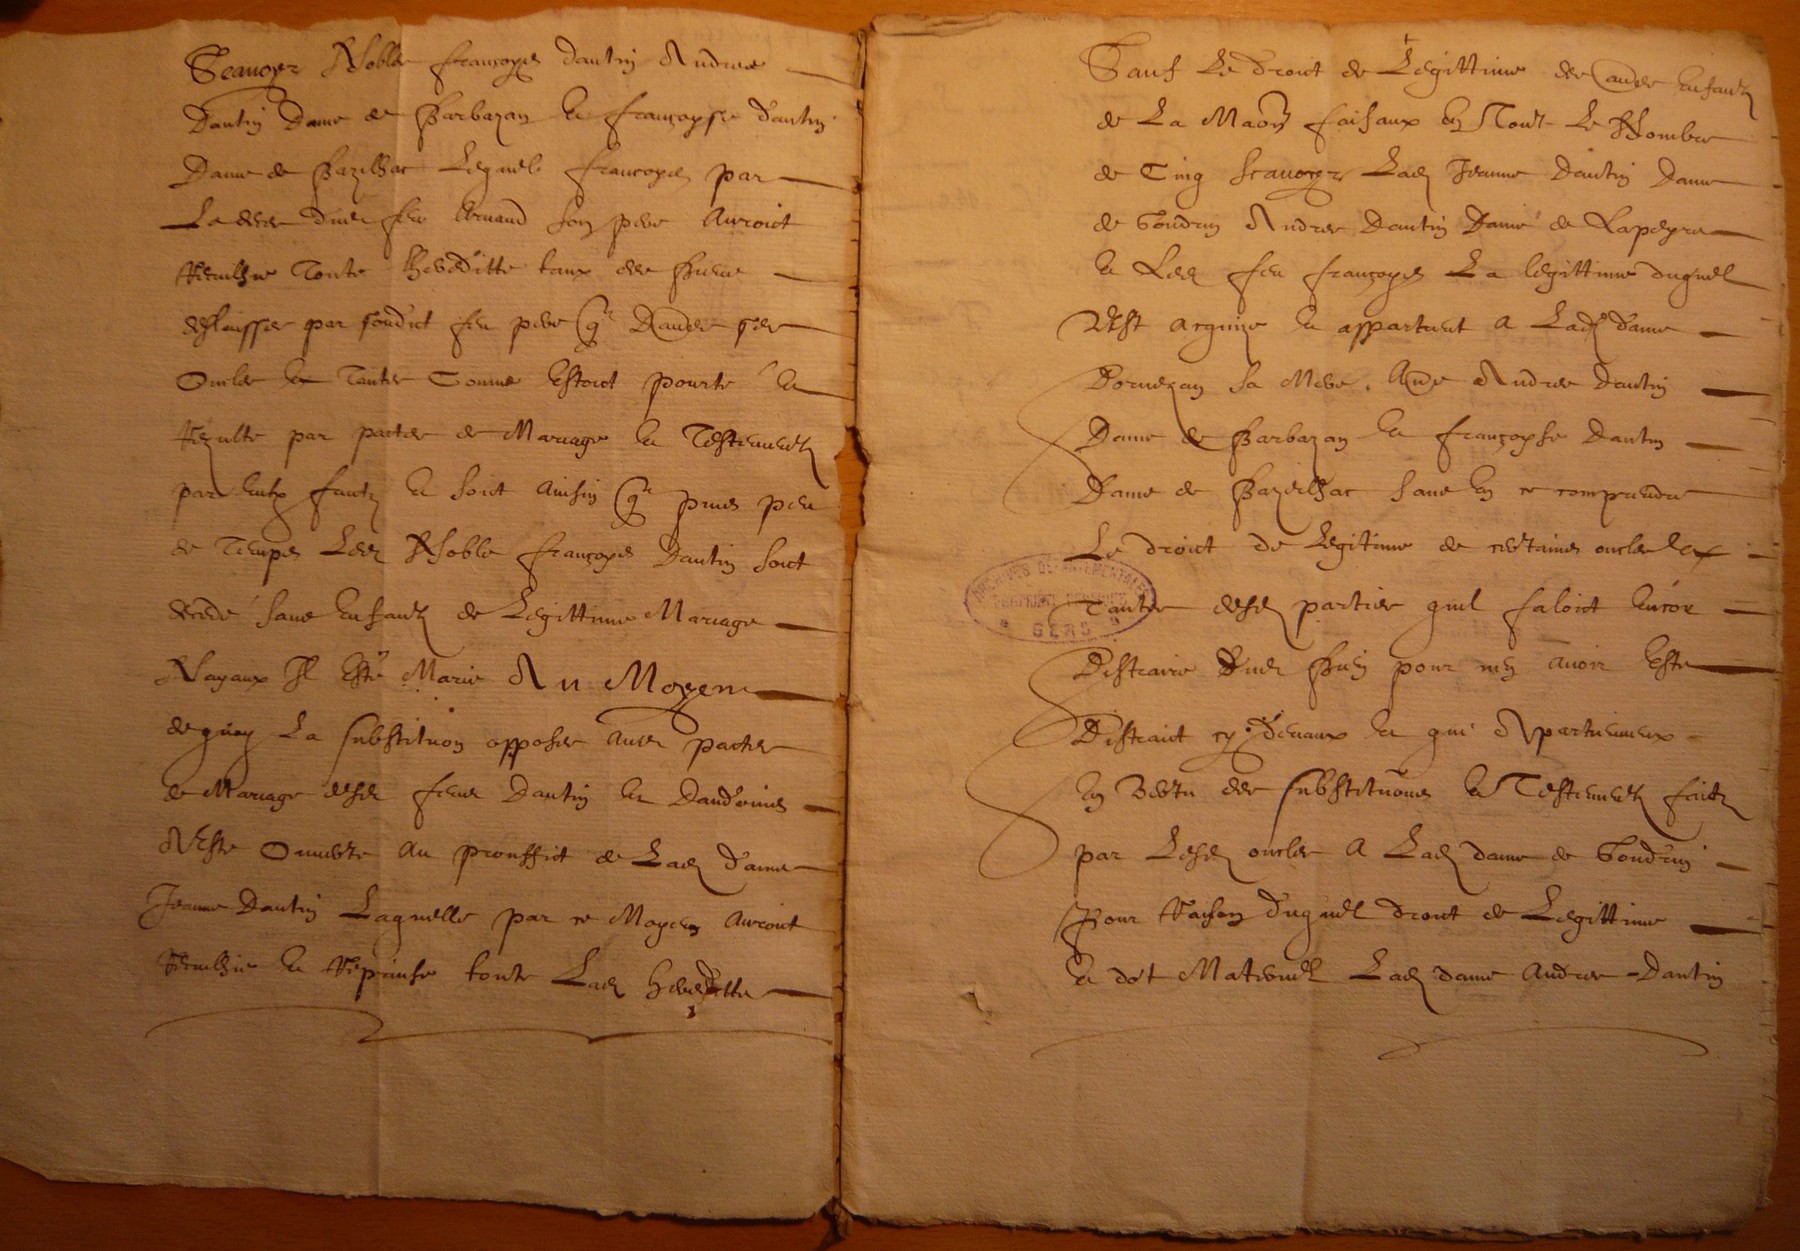 Scavoyr Noble françoys dantin Andree
Dantin Dame de Barbazan et françoyse d'antin
Dame de Bazilhac Lequel françoys par
La feu Arnaud son pere Auroict
Toute hereditte taux des
par sondict feu pere que ses
Oncles et Tantes Comme Estoict pourté et
par pactes de Mariage et Testementz
par eulx faictz et soict Ainsin que peu
de Temps Led Noble françoys Dantin soict
decedé sans Enfantz de Legittime Mariage
Nayant Il Esté Marié Au Moyen
de quoy La substitution apposee Aux pactes
de Mariage desd feus Dantin et Dandoins
A Este Ouverte Au prouffict de Lad dame
Jeanne Dantin Laquelle par ce Moyen Auroict
et toute Lad heredittte
Sauf Le droict de Legittime des Enfantz
de La Maon faisant En Tout Le Nombre
de Cinq scavoyr Lad Jeanne Dantin Dame
de Gondrin Andree Dantin Dame de Lapeyre
et Led feu françoys La legittime duquel
Est acquize et appartient A Lad dame
Dornezan sa Mere, Andree Dantin
Dame de Barbazan et françoyse Dantin
Dame de Bazeilhac sans En ce comprendre
Le droict de Legitime de certains oncles et
Tantes desd parties quil faloict Encor
Distraire Bien pour ny avoir Esté
Distraict cy devant et qui Apartiennent
En Vertu des substitutions et Testementz faictz
par Lesd oncles A Lad dame de Gondrin
Pour Raison duquel droict de Legittime
et dot Maternel Lad dame Andree Dantin
ARCHIVES DÉPARTEMENTALES
GERS